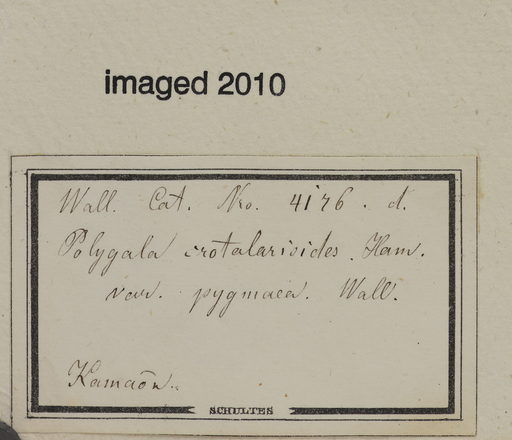 imaged 2010
Wall. Cat. No. 4176. d.
Polygala crotalarioides. Ham.
var. pygmaea. Wall.
Kamaōn.
SCHULTES